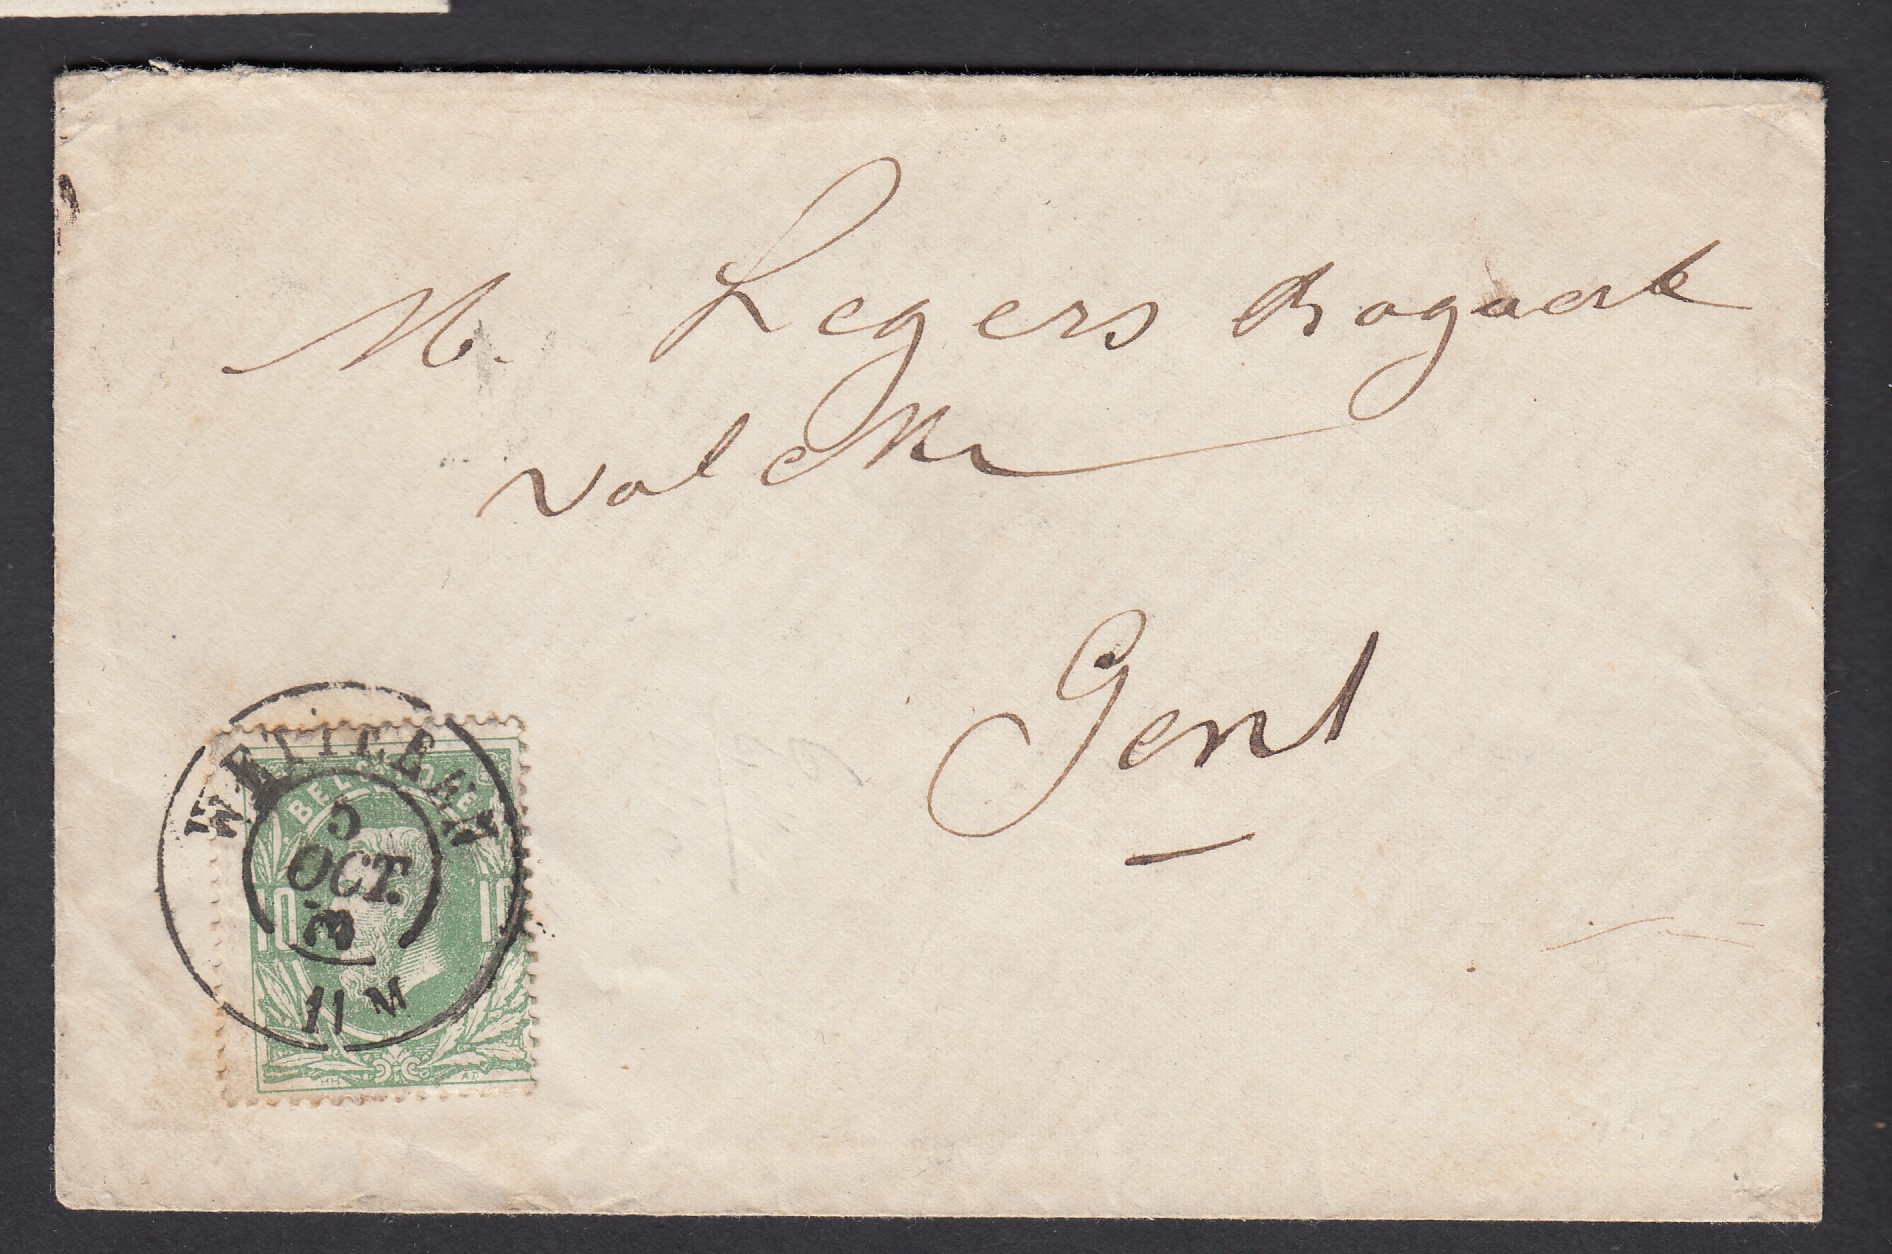 M. Legers Bogaert
Valckx
Gent
WETTEREN
5
OCT.
11 M
BELGIQUE
10 10
HH AD